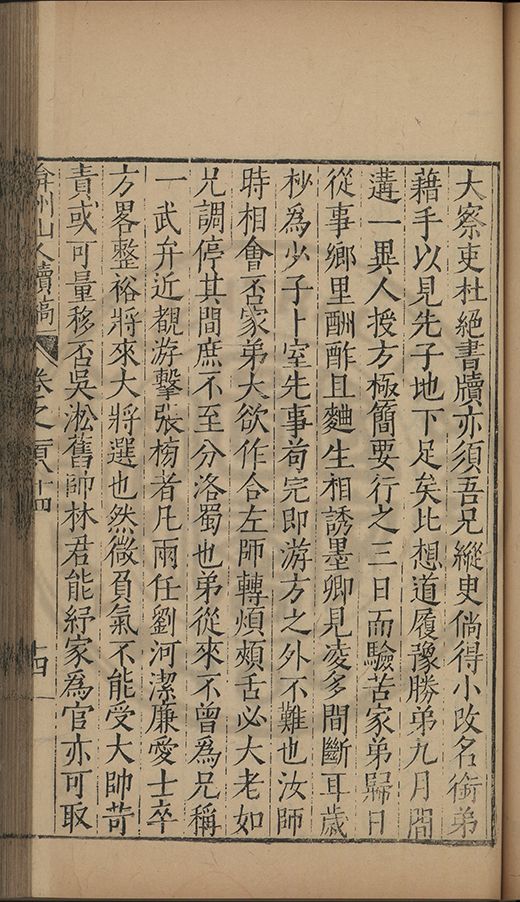 大察吏杜絕書牘亦須吾兄縱臾倘得小改名銜弟
藉手以見先子地下足矣比想道履豫勝弟九月間
遘一異人授方極簡要行之三日而驗苦家弟歸日
從事鄉里酬酢且麯生相誘墨卿見凌多間斷耳歲
杪為少子卜室先事苟完即游方之外不難也汝師
時相會否家弟大欲作合左師轉煩頰舌必大老如
兄調停其間庶不至分洛蜀也弟從來不曾為兄稱
一武弁近覩游擊張榜者凡兩任劉河潔廉愛士卒
方畧整裕將來大將選也然微負氣不能受大帥苛
責或可量移否吳淞舊帥林君能紓家為官亦可取
弇州山人續稿 卷之一百八十四 十四